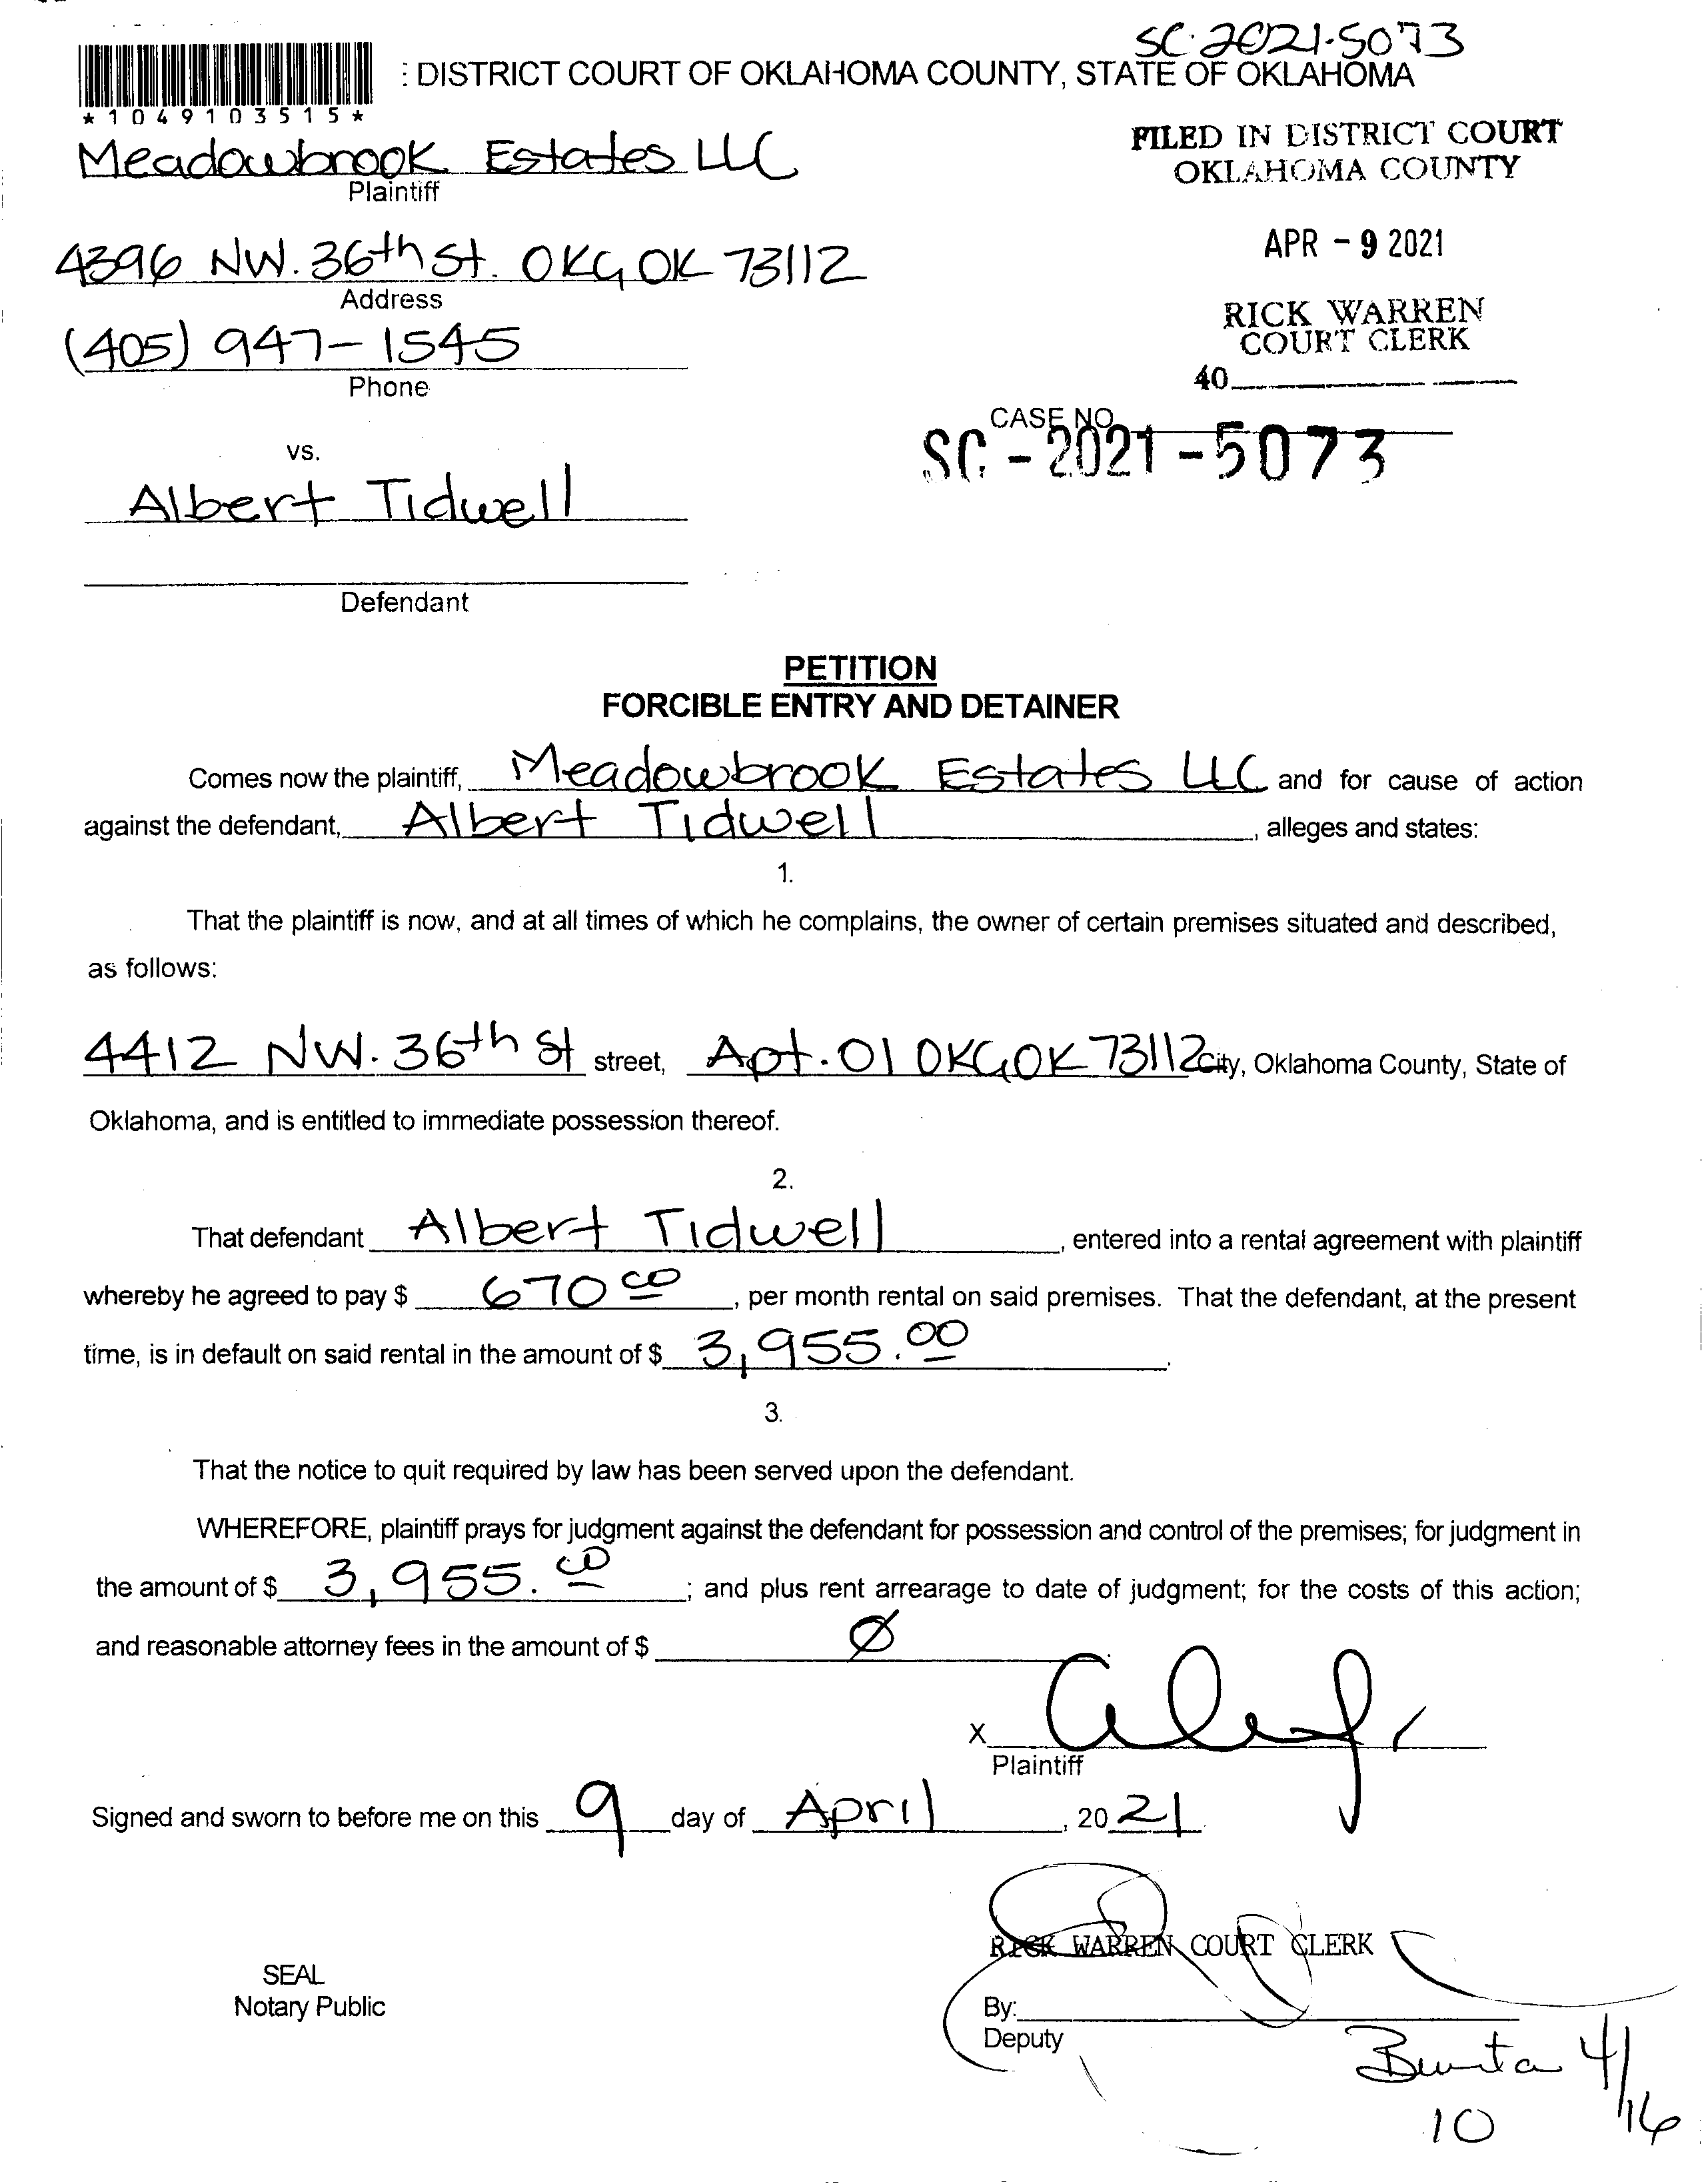 SC-2021-5073
: DISTRICT COURT OF OKLAHOMA COUNTY, STATE OF OKLAHOMA
*1049103515*
Meadowbrook Estates LLC
Plaintiff
FILED IN DISTRICT COURT
OKLAHOMA COUNTY
4396 NW. 36th St. OKC, OK 73112
Address
APR - 9 2021
(405) 947-1545
Phone
RICK WARREN
COURT CLERK
40
CASE NO.
SC-2021-5073
vs.
Albert Tidwell
Defendant
PETITION
FORCIBLE ENTRY AND DETAINER
Comes now the plaintiff, Meadowbrook Estates LLC and for cause of action
against the defendant, Albert Tidwell, alleges and states:
1.
That the plaintiff is now, and at all times of which he complains, the owner of certain premises situated and described,
as follows:
4412 NW. 36th St street, Apt. 01 OKC, OK 73112 City, Oklahoma County, State of
Oklahoma, and is entitled to immediate possession thereof.
2.
That defendant Albert Tidwell, entered into a rental agreement with plaintiff
whereby he agreed to pay $ 670 00, per month rental on said premises. That the defendant, at the present
time, is in default on said rental in the amount of $ 3,955.00.
3.
That the notice to quit required by law has been served upon the defendant.
WHEREFORE, plaintiff prays for judgment against the defendant for possession and control of the premises; for judgment in
the amount of $ 3,955.00; and plus rent arrearage to date of judgment; for the costs of this action;
and reasonable attorney fees in the amount of $ Ø
X
Plaintiff
Signed and sworn to before me on this 9 day of April, 20 21
RICK WARREN COURT CLERK
SEAL
Notary Public
By:
Deputy
4/16
10